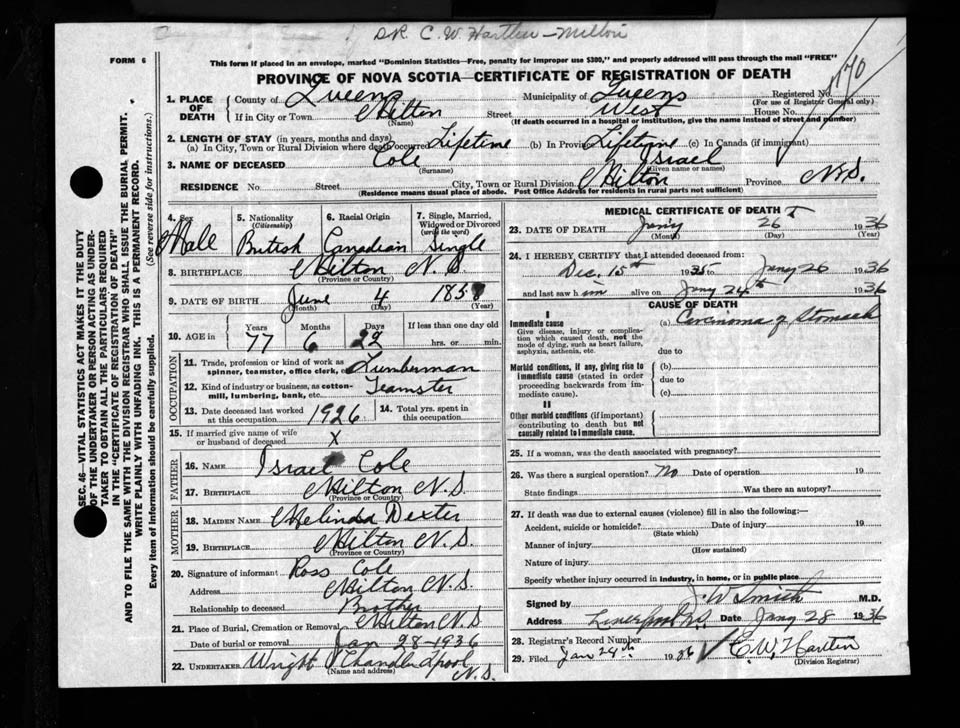 DR. C. W. Hartlen - Milton
FORM 6
This form if placed in an envelope, marked "Dominion Statistics—Free, penalty for improper use $300," and properly addressed will pass through the mail "FREE"
PROVINCE OF NOVA SCOTIA—CERTIFICATE OF REGISTRATION OF DEATH
1. PLACE OF DEATH
County of Queens
Municipality of Queens West
Registered No.
(For use of Registrar General only)
If in City or Town Milton
(Name)
Street
House No.
(If death occurred in a hospital or institution, give the name instead of street and number)
2. LENGTH OF STAY (in years, months and days)
(a) In City, Town or Rural Division where death occurred Lifetime (b) In Province Lifetime (c) In Canada (if immigrant)
3. NAME OF DECEASED Cole Israel
(Surname) (Given name or names)
RESIDENCE No. Street City, Town or Rural Division Milton Province N.S.
(Residence means usual place of abode. Post Office Address for residents in rural parts not sufficient)
4. Sex Male
5. Nationality (Citizenship) British
6. Racial Origin Canadian
7. Single, Married, Widowed or Divorced (write the word) Single
8. BIRTHPLACE Milton N.S.
(Province or Country)
9. DATE OF BIRTH June 4 185
(Month) (Day) (Year)
10. AGE in
Years Months Days If less than one day old
77 6 22 hrs. or min.
OCCUPATION
11. Trade, profession or kind of work as spinner, teamster, office clerk, etc. Lumberman
12. Kind of industry or business, as cotton-mill, lumbering, bank, etc. Teamster
13. Date deceased last worked at this occupation 1926
14. Total yrs. spent in this occupation
15. If married give name of wife or husband of deceased X
FATHER
16. NAME Israel Cole
17. BIRTHPLACE Milton N.S.
(Province or Country)
MOTHER
18. MAIDEN NAME Melinda Dexter
19. BIRTHPLACE Milton N.S.
(Province or Country)
20. Signature of informant Ross Cole
Address Milton N.S.
Relationship to deceased Brother
21. Place of Burial, Cremation or Removal Milton N.S.
Date of burial or removal Jan 28-1936
22. UNDERTAKER Wright Chandler L'pool N.S.
(Name and address)
MEDICAL CERTIFICATE OF DEATH
23. DATE OF DEATH Jan'y 26 1936
(Month) (Day) (Year)
24. I HEREBY CERTIFY that I attended deceased from:
Dec. 15th 1935 to Jany 26 1936
and last saw him alive on Jany 24th 1936
CAUSE OF DEATH
I
Immediate cause
Give disease, injury or complication which caused death, not the mode of dying, such as heart failure, asphyxia, asthenia, etc.
(a) Carcinoma of Stomach
due to
Morbid conditions, if any, giving rise to immediate cause (stated in order proceeding backwards from immediate cause).
(b)
due to
(c)
II
Other morbid conditions (if important) contributing to death but not causally related to immediate cause.
25. If a woman, was the death associated with pregnancy?
26. Was there a surgical operation? No Date of operation 19
State findings Was there an autopsy?
27. If death was due to external causes (violence) fill in also the following:—
Accident, suicide or homicide? Date of injury 19
(State which)
Manner of injury
(How sustained)
Nature of injury
Specify whether injury occurred in industry, in home, or in public place
Signed by J. W Smith M.D.
Address Liverpool N.S. Date Jany 28 1936
28. Registrar's Record Number
29. Filed Jan 28th 1936 C. W. Hartlen
(Division Registrar)
SEC. 46—VITAL STATISTICS ACT MAKES IT THE DUTY
OF THE UNDERTAKER OR PERSON ACTING AS UNDER-
TAKER TO OBTAIN ALL THE PARTICULARS REQUIRED
IN THE "CERTIFICATE OF REGISTRATION OF DEATH"
AND TO FILE THE SAME WITH THE DIVISION REGISTRAR WHO SHALL ISSUE THE BURIAL PERMIT.
WRITE PLAINLY WITH UNFADING INK. THIS IS A PERMANENT RECORD.
Every item of information should be carefully supplied. (See reverse side for instructions.)